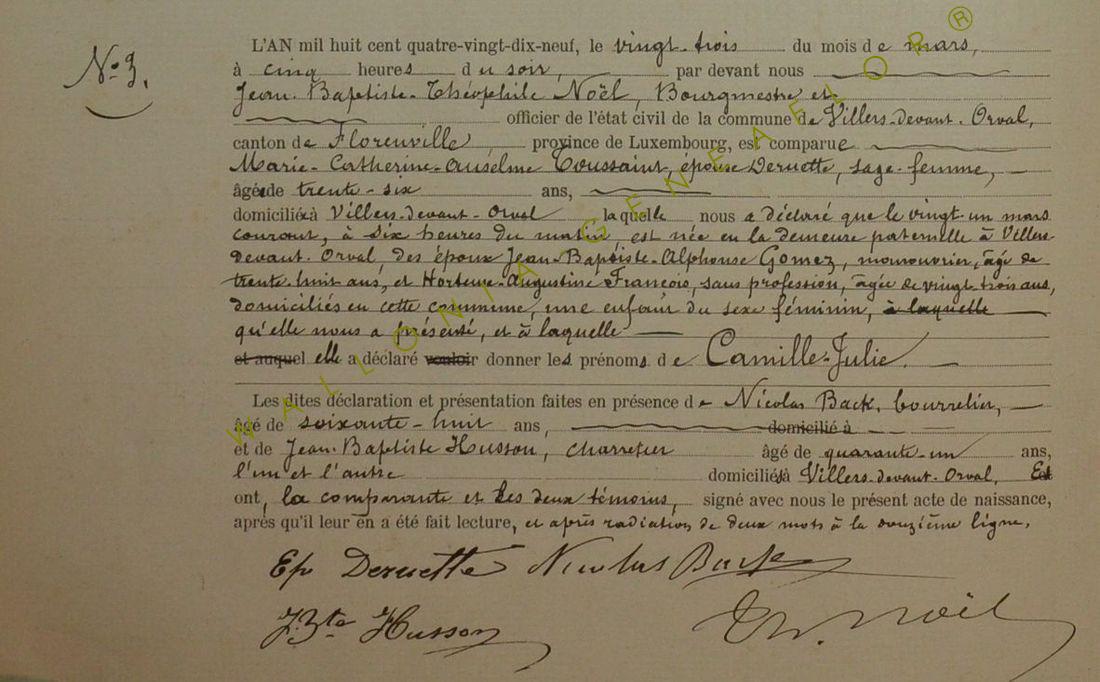 N° 3.
L'AN mil huit cent quatre-vingt-dix-neuf, le vingt-trois du mois de mars,
à cinq heures du soir, par devant nous
Jean-Baptiste-Théophile Noël, Bourgmestre et
officier de l'état civil de la commune de Villers-devant-Orval,
canton de Florenville, province de Luxembourg, est comparue
Marie-Catherine-Anselme Toussaint, épouse Deruette, sage-femme,
âgée de trente-six ans,
domiciliée à Villers-devant-Orval laquelle nous a déclaré que le vingt-un mars
courant, à six heures du matin, est née en la demeure paternelle à Villers-
devant-Orval, des époux Jean-Baptiste-Alphonse Gomez, manouvrier, âgé de
trente-huit ans, et Hortense-Augustine François, sans profession, âgée de vingt-trois ans,
domiciliés en cette commune, une enfant du sexe féminin, à laquelle
qu'elle nous a présenté, et à laquelle
et auquel elle a déclaré vouloir donner les prénoms de Camille-Julie.
Les dites déclaration et présentation faites en présence de Nicolas Back, bourrelier,
âgé de soixante-huit ans, domicilié à
et de Jean-Baptiste Husson, charretier âgé de quarante-un ans,
l'un et l'autre domiciliés à Villers-devant-Orval, Et
ont, la comparante et les deux témoins, signé avec nous le présent acte de naissance,
après qu'il leur en a été fait lecture, et après radiation de deux mots à la douzième ligne.
Ep Deruette Nicolas Back
J. Bte Husson Th. Noël
WALLONIA-GENEAFLOR®